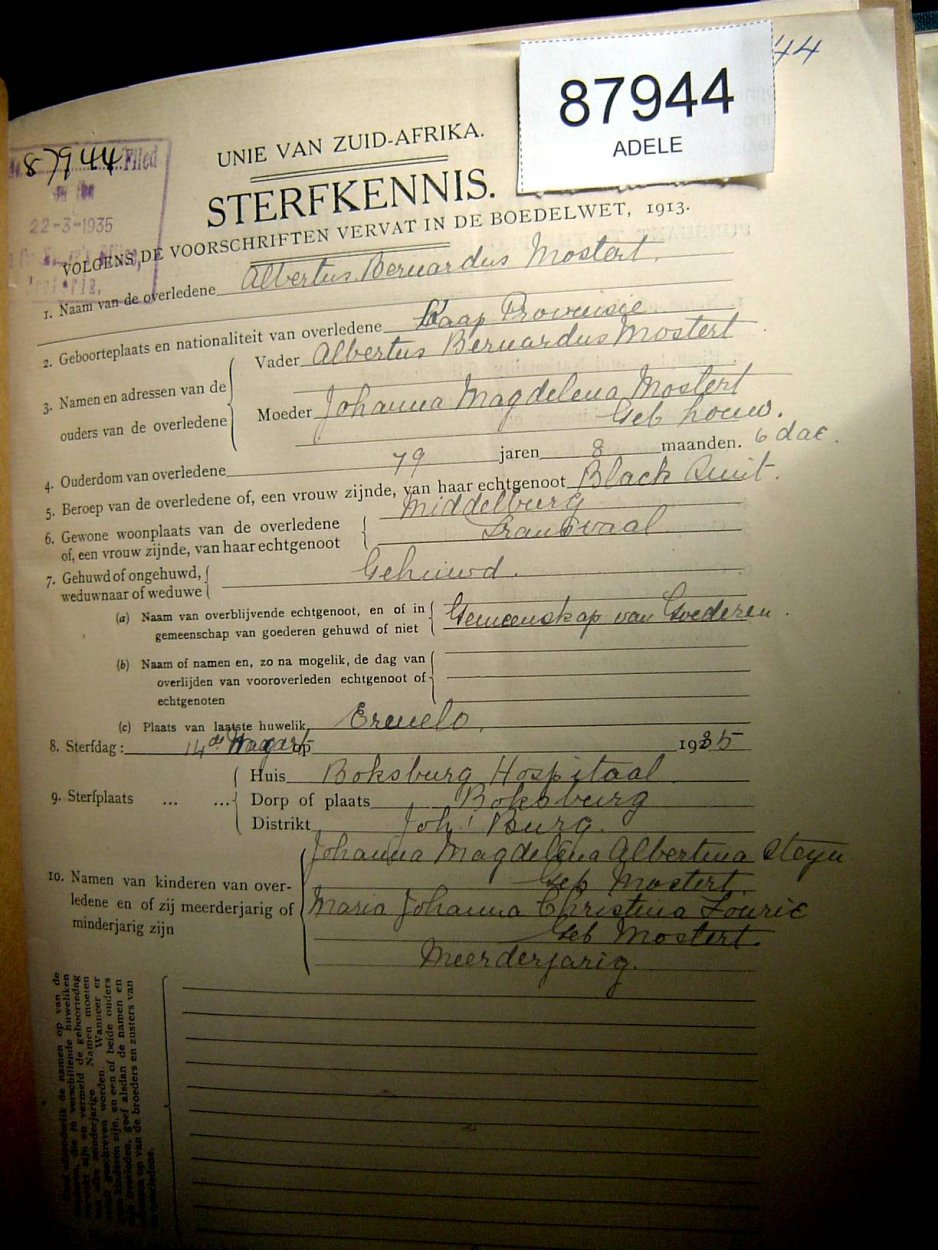 44
87944
ADELE
87944 Filed
on the
22-3-1935
UNIE VAN ZUID-AFRIKA.
STERFKENNIS.
VOLGENS DE VOORSCHRIFTEN VERVAT IN DE BOEDELWET, 1913.
1. Naam van de overledene Albertus Bernardus Mostert.
2. Geboorteplaats en nationaliteit van overledene Kaap Provinsie
3. Namen en adressen van de ouders van de overledene
Vader Albertus Bernardus Mostert
Moeder Johanna Magdelena Mostert
Geb Louw.
4. Ouderdom van overledene 79 jaren 8 maanden. 6 dae.
5. Beroep van de overledene of, een vrouw zijnde, van haar echtgenoot Black Smit.
6. Gewone woonplaats van de overledene Middelburg
of, een vrouw zijnde, van haar echtgenoot Transvaal
7. Gehuwd of ongehuwd, Gehuwd.
weduwnaar of weduwe
(a) Naam van overblijvende echtgenoot, en of in Gemeenskap van Goederen.
gemeenschap van goederen gehuwd of niet
(b) Naam of namen en, zo na mogelik, de dag van
overlijden van vooroverleden echtgenoot of
echtgenoten
(c) Plaats van laatste huwelik Ermelo.
8. Sterfdag: 14de op 1935
9. Sterfplaats ... ...
Huis Boksburg Hospitaal
Dorp of plaats Boksburg
Distrikt Joh'Burg.
10. Namen van kinderen van over-
ledene en of zij meerderjarig of
minderjarig zijn
Johanna Magdelena Albertina Steyn
Geb Mostert
Maria Johanna Christina Fourie
Geb Mostert
Meerderjarig.